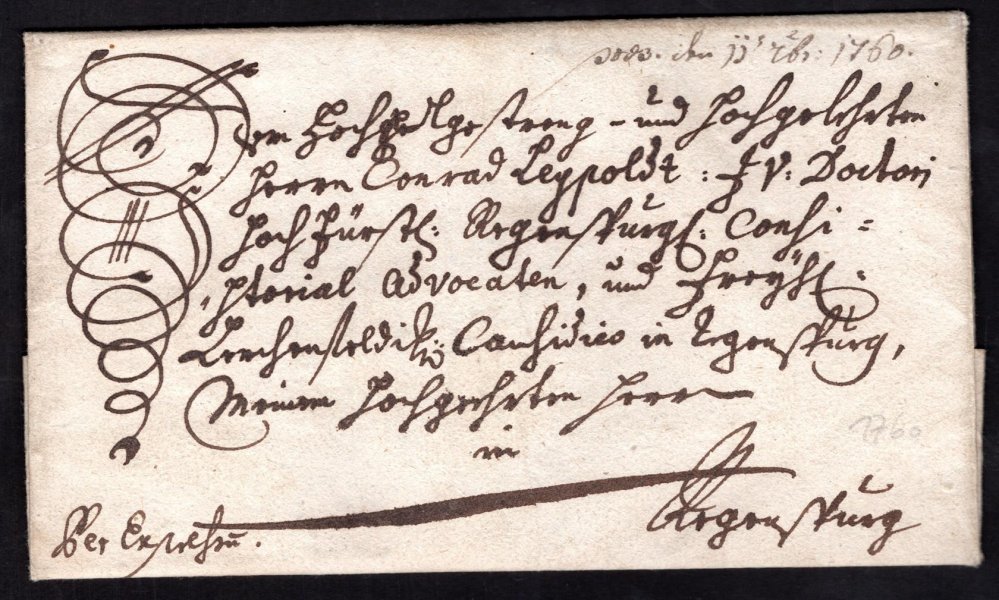 den 11 7br: 1760.
Dem HochEdlgestreng - und Hochgelehrten
Herrn Conrad Leypoldt : J V: Doctori
HochFürstl: Regenspurgl: Consi =
storial Advocaten, und Freyhl:
Lerchenfeldik: Causidico in Regenspurg,
Meinem Hochgeehrten Herrn
in
1760
Regenspurg